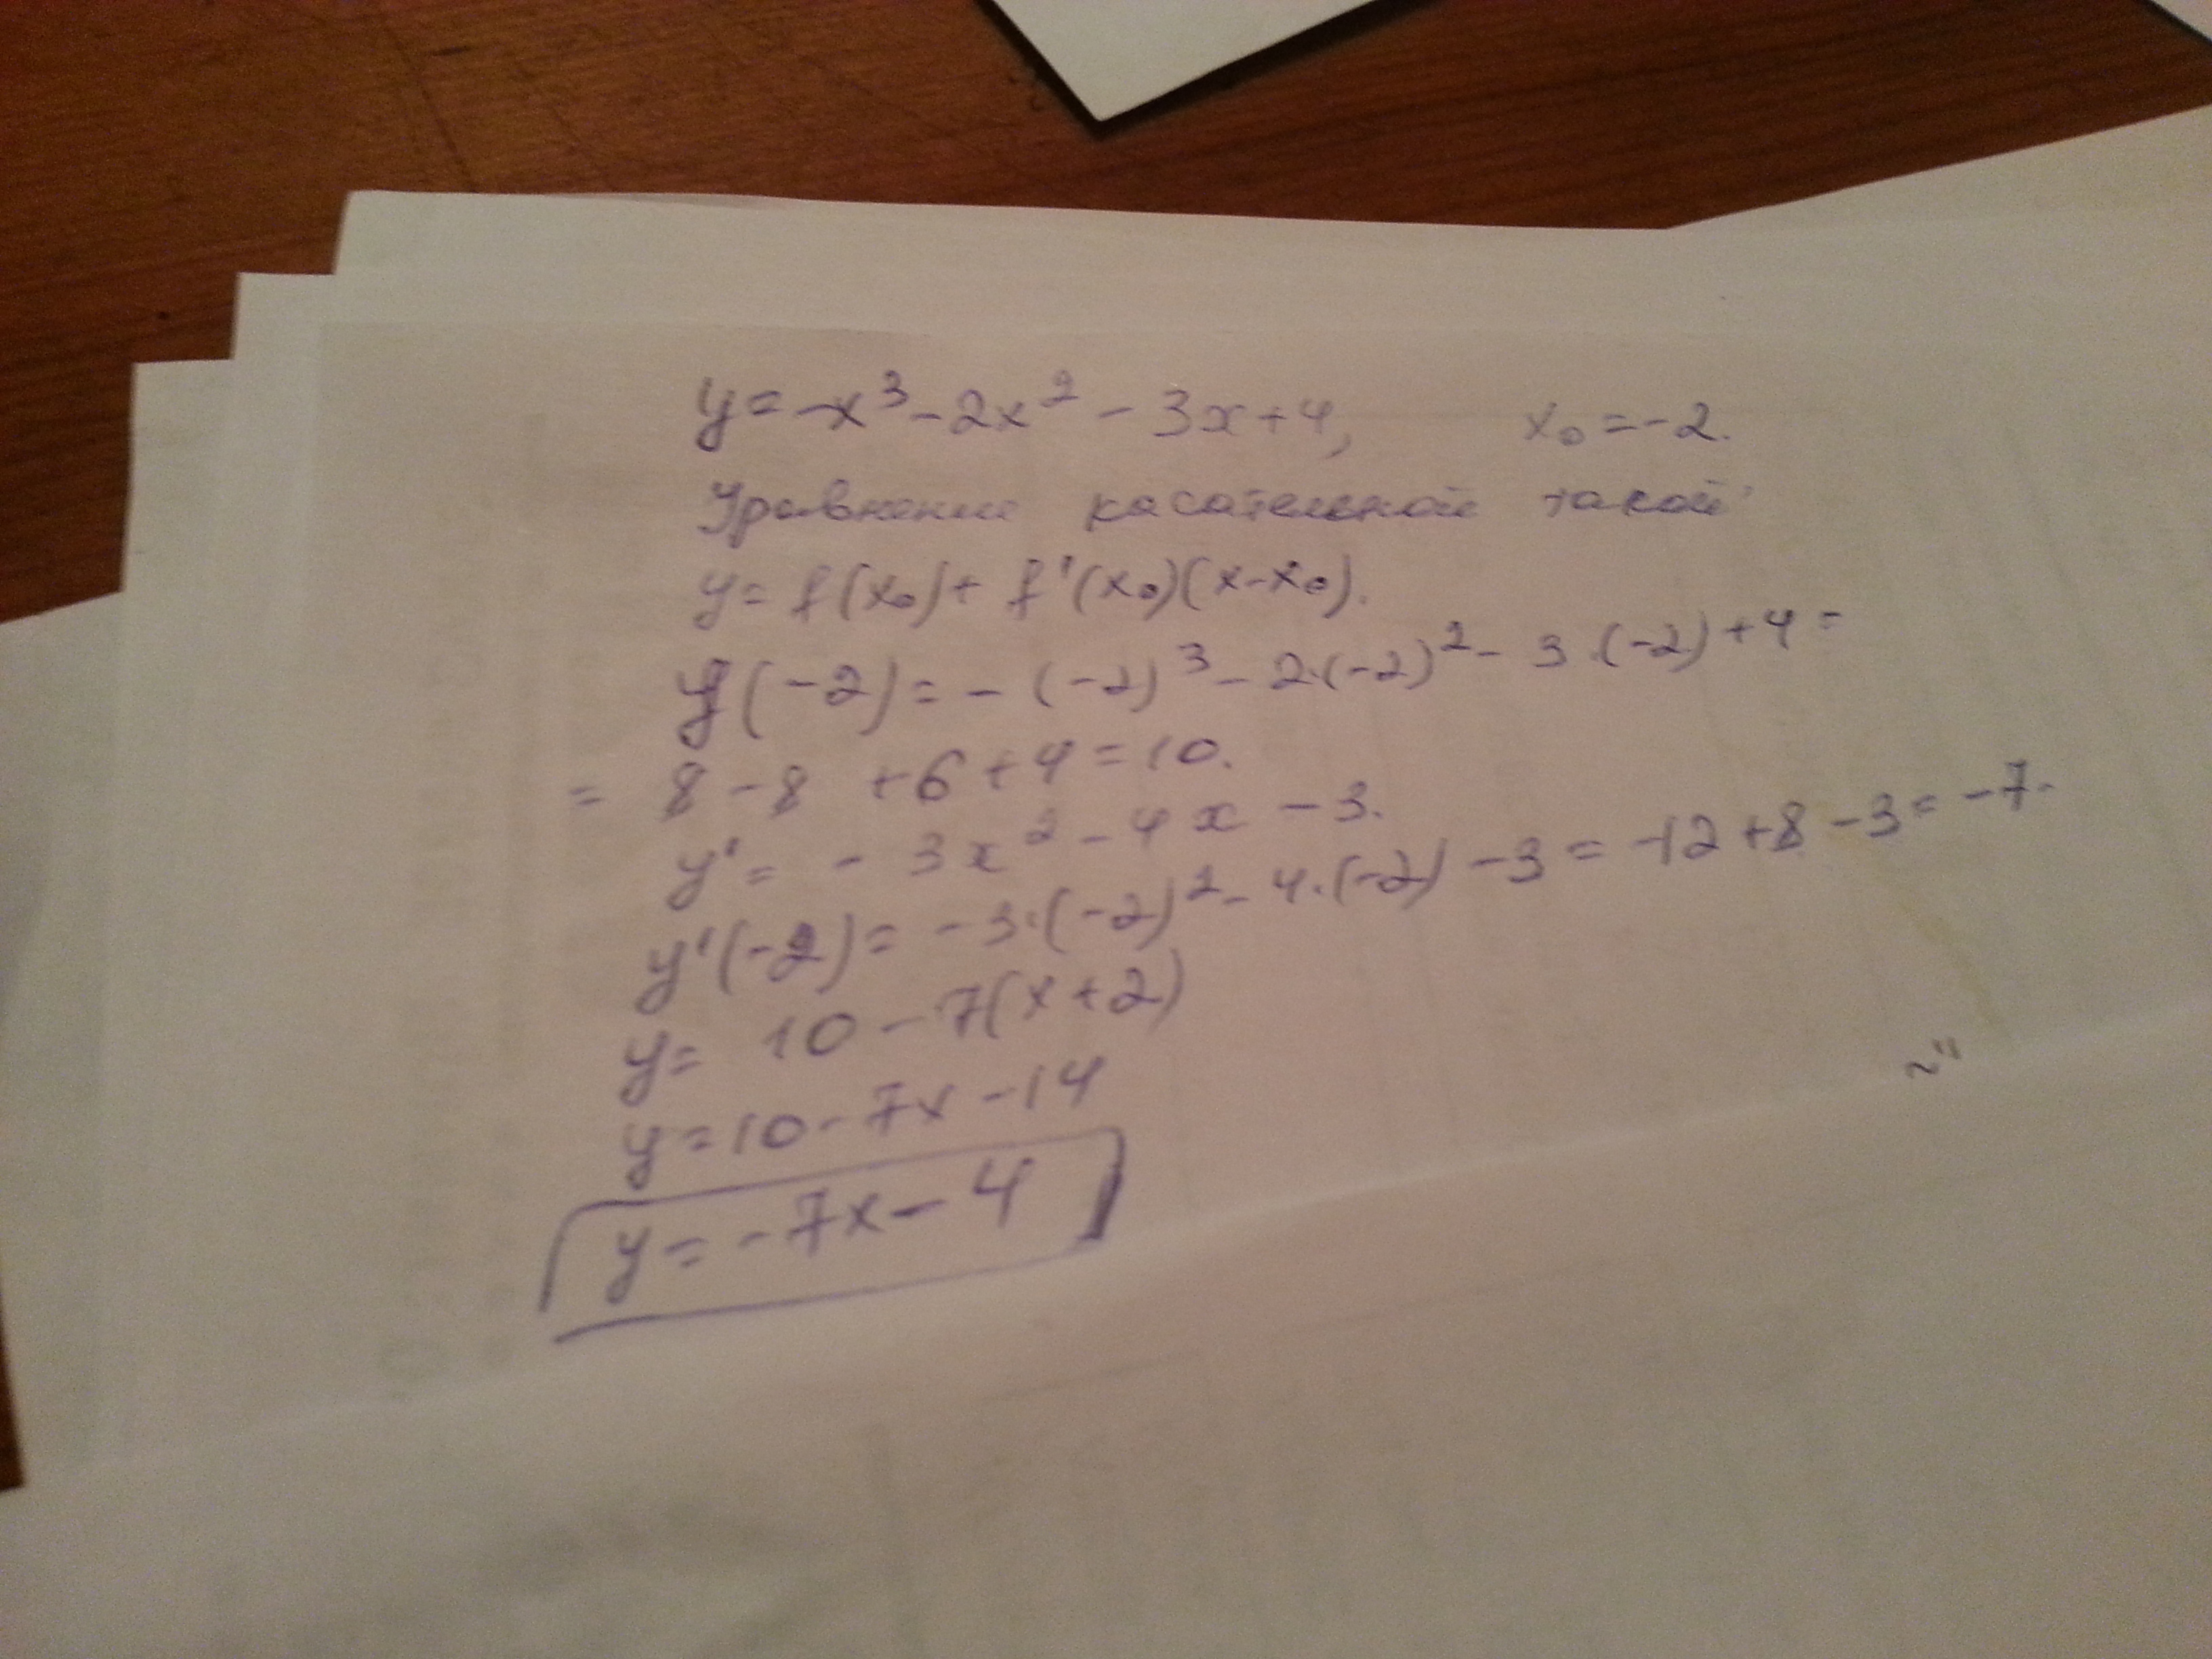 y = -x³ - 2x² - 3x + 4, x₀ = -2.
Уравнение касательной такой
y = f(x₀) + f'(x₀)(x - x₀).
y(-2) = -(-2)³ - 2·(-2)² - 3·(-2) + 4 =
= 8 - 8 + 6 + 4 = 10.
y' = -3x² - 4x - 3.
y'(-2) = -3·(-2)² - 4·(-2) - 3 = -12 + 8 - 3 = -7.
y = 10 - 7(x + 2)
y = 10 - 7x - 14
y = -7x - 4